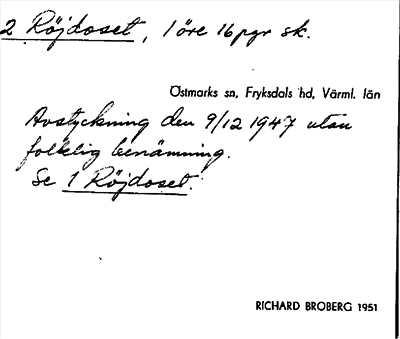 2 Röjdoset, 1 öre 16 pgr sk.
Östmarks sn, Fryksdals hd, Värml. län
Avstyckning den 9/12 1947 utan
folklig benämning.
Se 1 Röjdoset.
RICHARD BROBERG 1951